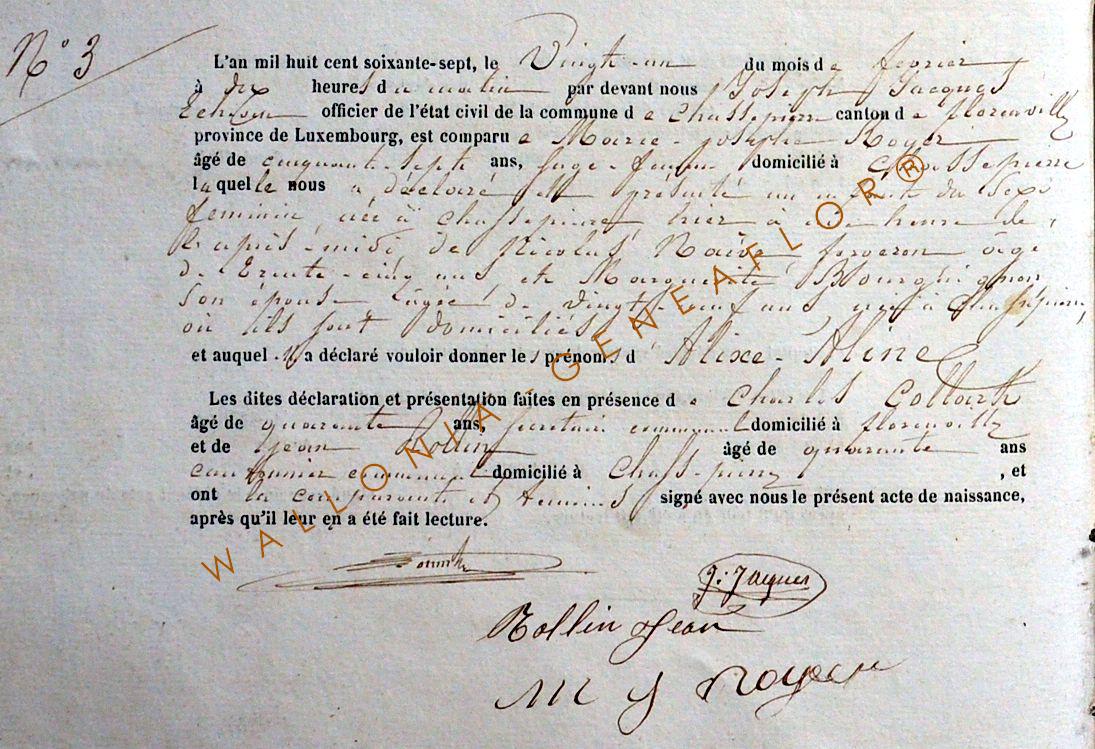 N° 3
L'an mil huit cent soixante-sept, le Vingt-un du mois de fevrier
à dix heures du matin par devant nous Joseph Jacques
Echevin officier de l'état civil de la commune de Chassepierre canton de florenville
province de Luxembourg, est comparue Marie-josephe Royer
âgé de cinquante-sept ans, sage-femme domicilié à Chassepierre
laquelle nous a déclaré et présenté un enfant du sexe
féminin née à Chassepierre hier à heure de
l'après-midi de Nicolas forgeron âgé
de trente-cinq ans et Marguerite Bourguignon
son épouse âgée de vingt-neuf ans, à Chassepierre,
où ils sont domiciliés
et auquel a déclaré vouloir donner les prénoms d' Alixe-Aline
Les dites déclaration et présentation faites en présence de Charles Collard
âgé de quarante ans, secrétaire communal domicilié à florenville
et de Jean Rollin âgé de quarante ans
cantonnier communal domicilié à Chassepierre, et
ont la comparante et témoins signé avec nous le présent acte de naissance,
après qu'il leur en a été fait lecture.
J: Jacques
Rollin Jean
M J Royer
WALLONIA-GENEAFLOR®